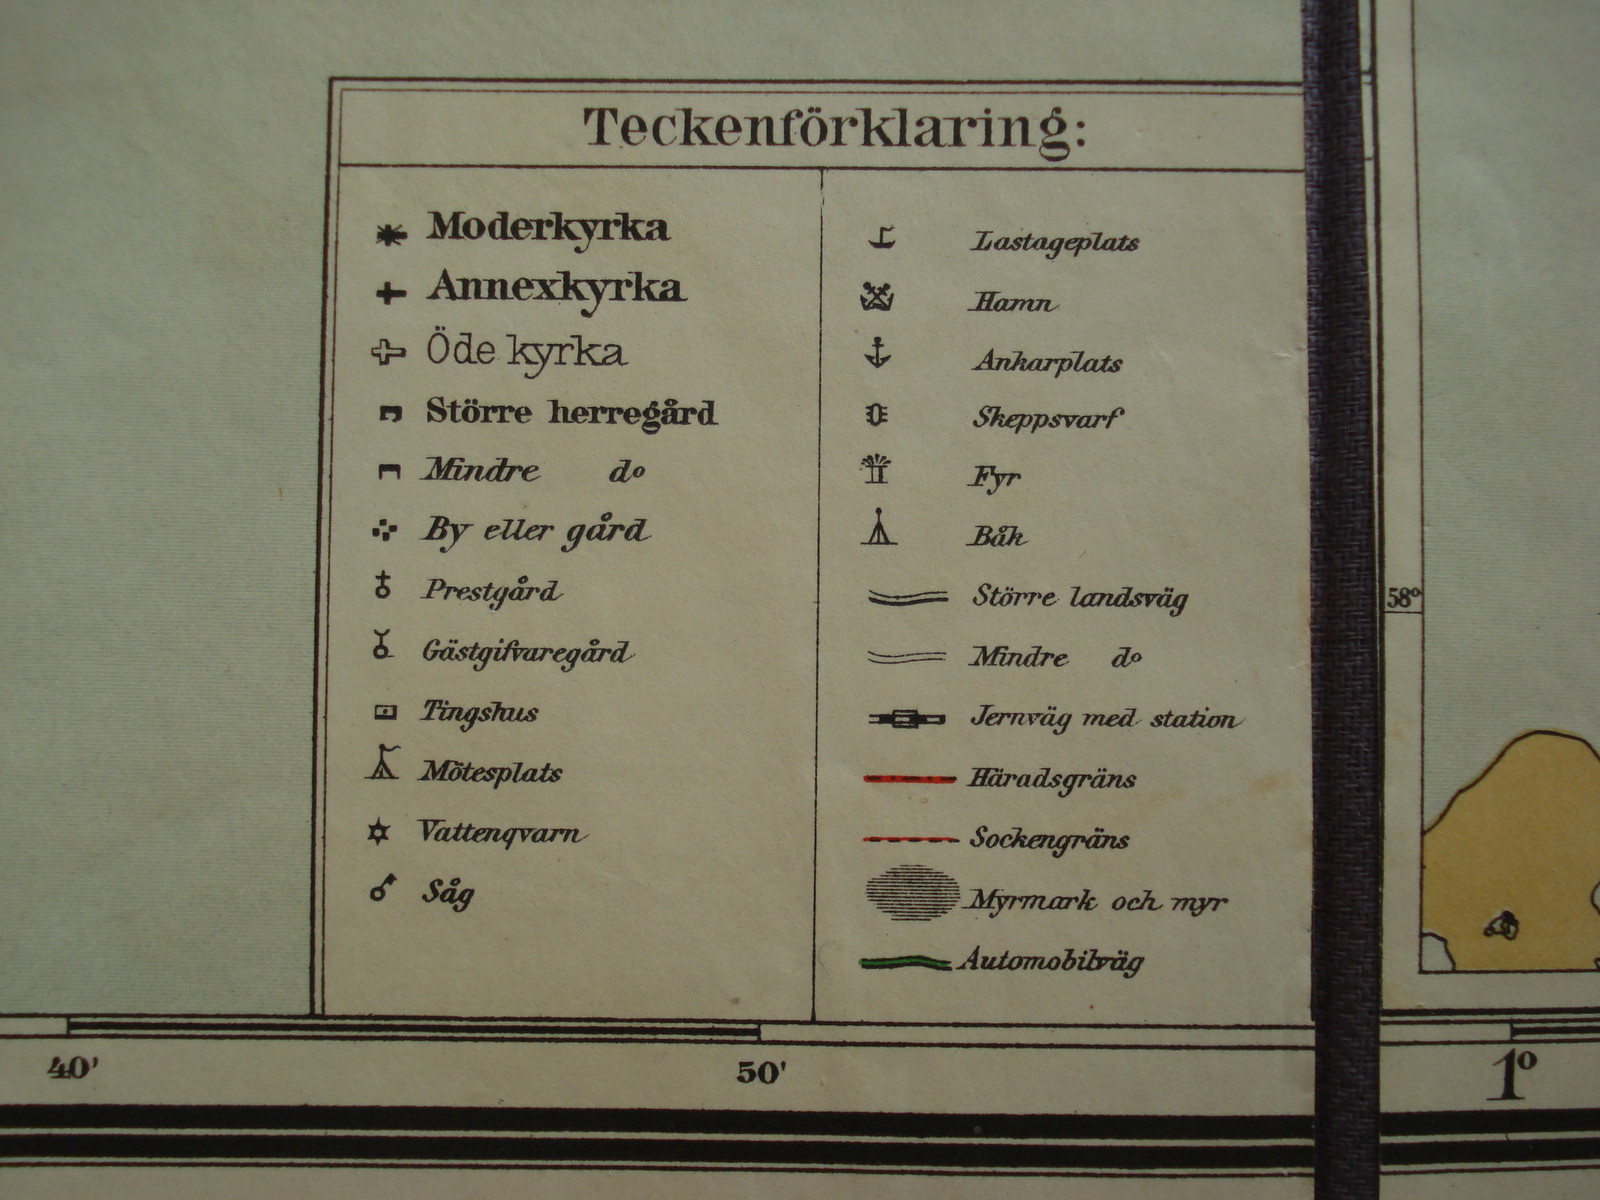 Teckenförklaring:
Moderkyrka
Annexkyrka
Öde kyrka
Större herregård
Mindre do
By eller gård
Prestgård
Gästgifvaregård
Tingshus
Mötesplats
Vattenqvarn
Såg
Lastageplats
Hamn
Ankarplats
Skeppsvarf
Fyr
Båk
Större landsväg
Mindre do
Jernväg med station
Häradsgräns
Sockengräns
Myrmark och myr
Automobilväg
58°
40' 50' 1°